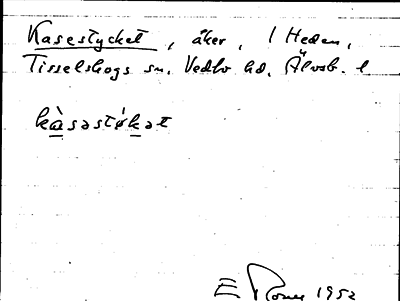 Kasestycket, åker, 1 Heden,
Tisselskogs sn. Vedbo hd. Älvsb. l
kàsəstýkət
E 1952